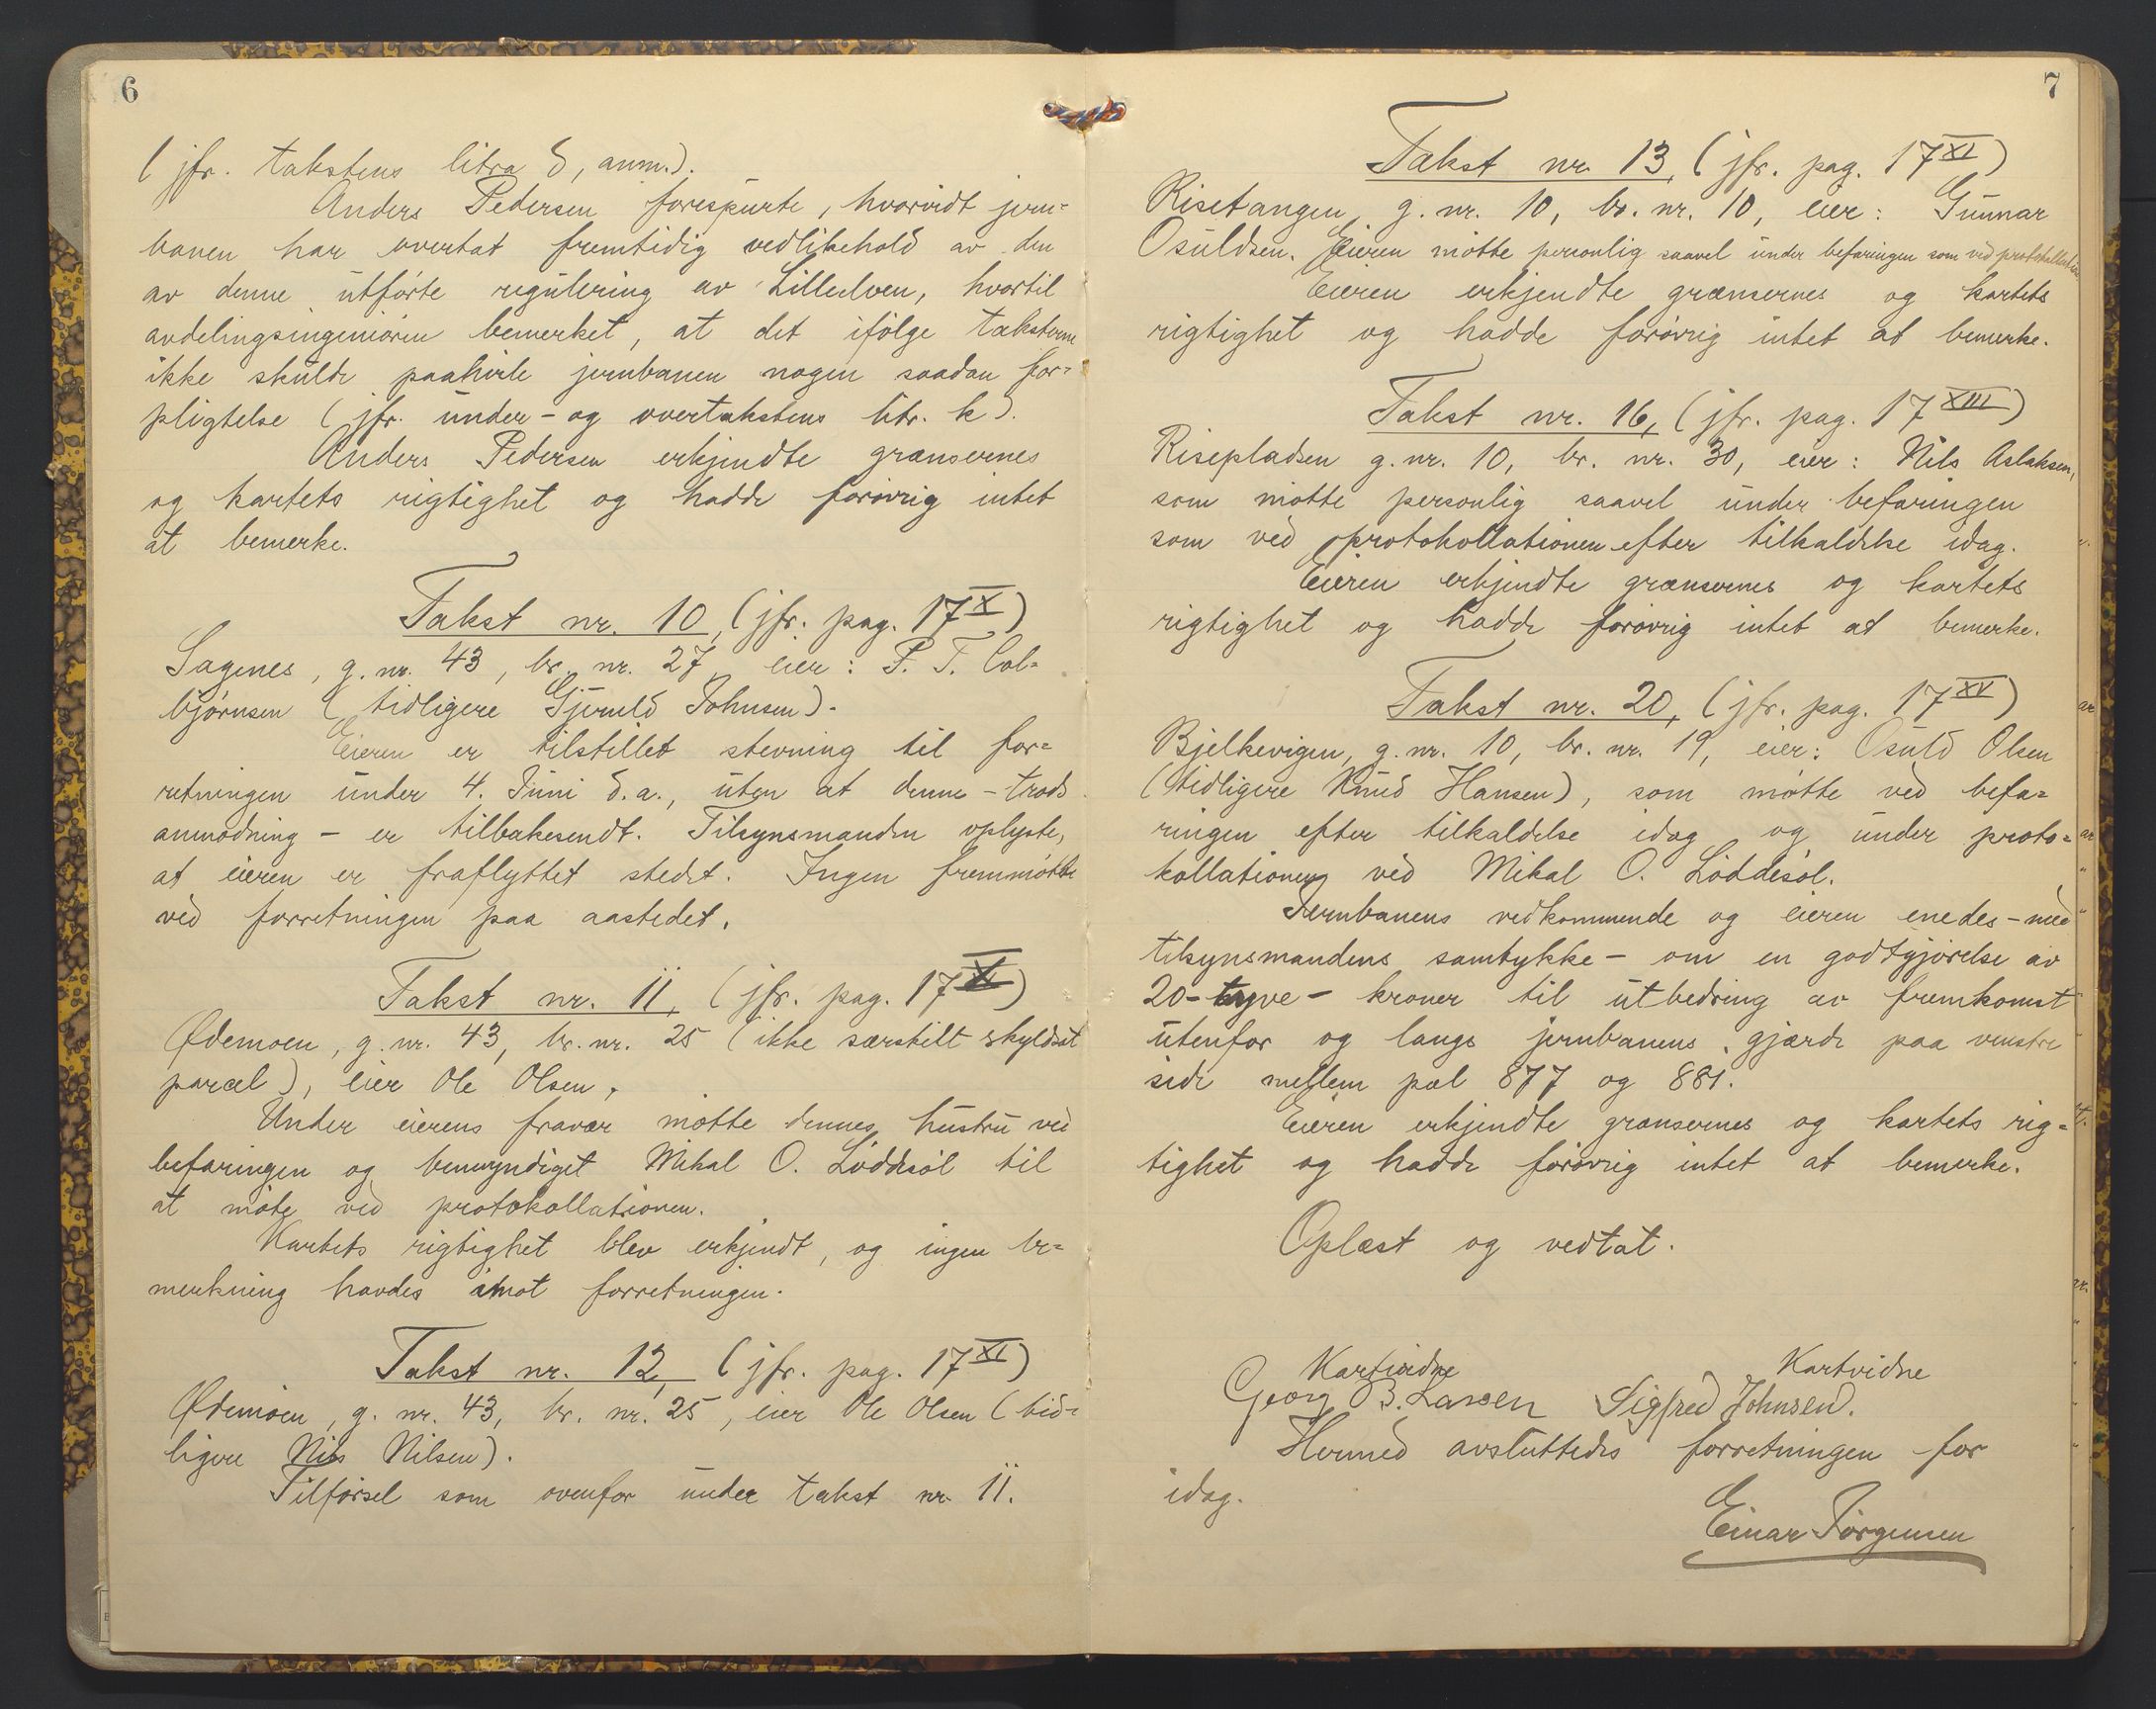 6
( jfr. takstens litra d, anm.).
Anders Pedersen forespurte, hvorvidt jern=
banen har overtat fremtidig vedlikehold av den
av denne utførte regulering av Lilleelven, hvortil
avdelingsingeniøren bemerket, at det ifølge taksterne
ikke skulde paahvile jernbanen nogen saadan for=
pligtelse (jfr. under- og overtakstens litr. k).
Anders Pedersen erkjendte grænsernes
og kartets rigtighet og hadde forøvrig intet
at bemerke.
Takst nr. 10, (jfr. pag. 17 X)
Sagenes, g. nr. 43, br. nr. 27, eier: P. T. Col=
bjørnsen (tidligere Gjeruld Johnsen).
Eieren er tilstillet stevning til for=
retningen under 4. Juni d.a., uten at denne - trods
anmodning - er tilbakesendt. Tilsynsmanden oplyste,
at eieren er fraflyttet stedet. Ingen fremmøtte
ved forretningen paa aastedet.
Takst nr. 11, (jfr. pag. 17 XI)
Ødemoen, g. nr. 43, br. nr. 25 (ikke særskilt skyldsat
parcel), eier Ole Olsen.
Under eierens fravær møtte dennes hustru ved
befaringen og bemyndiget Mikal O. Løddesøl til
at møte ved protokollationen.
Kartets rigtighet blev erkjendt, og ingen be=
merkning havdes imot forretningen.
Takst nr. 12, (jfr. pag. 17 XI)
Ødemoen, g. nr. 43, br. nr. 25, eier Ole Olsen (tid=
ligere Nils Nilsen).
Tilførsel som ovenfor under takst nr. 11.
7
Takst nr. 13, (jfr. pag. 17 XI)
Risetangen, g. nr. 10, br. nr. 10, eier: Gunnar
Osuldsen. Eieren møtte personlig saavel under befaringen som ved protokollationen.
Eieren erkjendte grænsernes og kartets
rigtighet og hadde forøvrig intet at bemerke.
Takst nr. 16, (jfr. pag. 17 XIII)
Risepladsen g. nr. 10, br. nr. 30, eier: Nils Aslaksen,
som møtte personlig saavel under befaringen
som ved protokollationen efter tilkaldelse idag.
Eieren erkjendte grænsernes og kartets
rigtighet og hadde forøvrig intet at bemerke.
Takst nr. 20, (jfr. pag. 17 XV)
Bjelkevigen, g. nr. 10, br. nr. 19, eier: Osuld Olsen
(tidligere Knud Hansen), som møtte ved befa=
ringen efter tilkaldelse idag og under proto=
kollationen ved Mikal O. Løddesøl.
Jernbanens vedkommende og eieren enedes - med
tilsynsmandens samtykke - om en godtgjørelse av
20 - tyve - kroner til utbedring av fremkomst
utenfor og langs jernbanens gjærde paa venstre
side mellem pæl 877 og 881.
Eieren erkjendte grænsernes og kartets rig=
tighet og hadde forøvrig intet at bemerke.
Oplæst og vedtat.
Kartvidne Kartvidne
Georg B. Larsen Sigfred Johnsen.
Hermed avsluttedes forretningen for
idag.
Einar Jørgensen